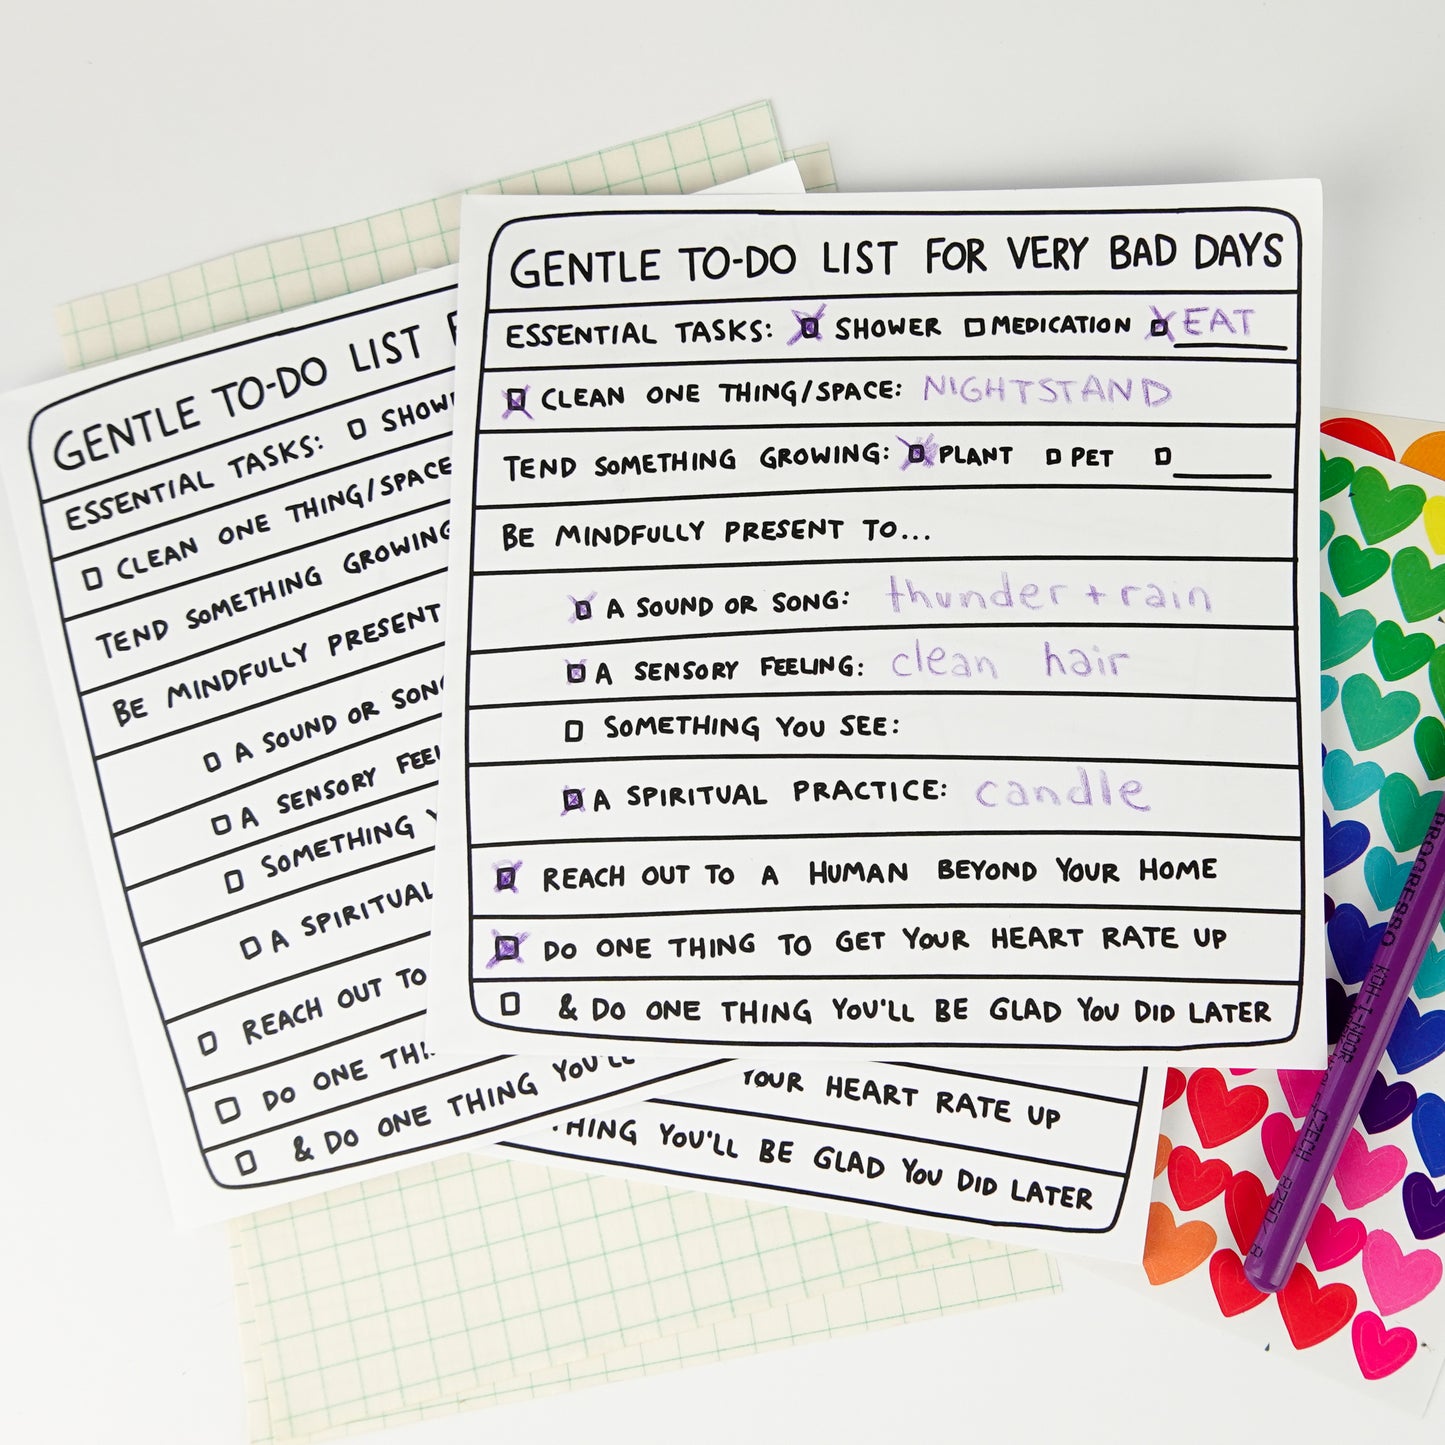 GENTLE TO-DO LIST FOR VERY BAD DAYS
ESSENTIAL TASKS: SHOWER MEDICATION EAT
CLEAN ONE THING/SPACE: NIGHTSTAND
TEND SOMETHING GROWING: PLANT PET
BE MINDFULLY PRESENT TO...
A SOUND OR SONG: thunder + rain
A SENSORY FEELING: clean hair
SOMETHING YOU SEE:
A SPIRITUAL PRACTICE: candle
REACH OUT TO A HUMAN BEYOND YOUR HOME
DO ONE THING TO GET YOUR HEART RATE UP
& DO ONE THING YOU'LL BE GLAD YOU DID LATER
GENTLE TO-DO LIST
ESSENTIAL TASKS: SHOW
CLEAN ONE THING/SPACE
TEND SOMETHING GROWING
BE MINDFULLY PRESENT
A SOUND OR SONG
A SENSORY FEEL
SOMETHING
A SPIRITUAL
REACH OUT TO
DO ONE THI
& DO ONE THING YOU'LL
YOUR HEART RATE UP
THING YOU'LL BE GLAD YOU DID LATER
PROGRESSO KOH-I-NOOR
CZECH 8750/8